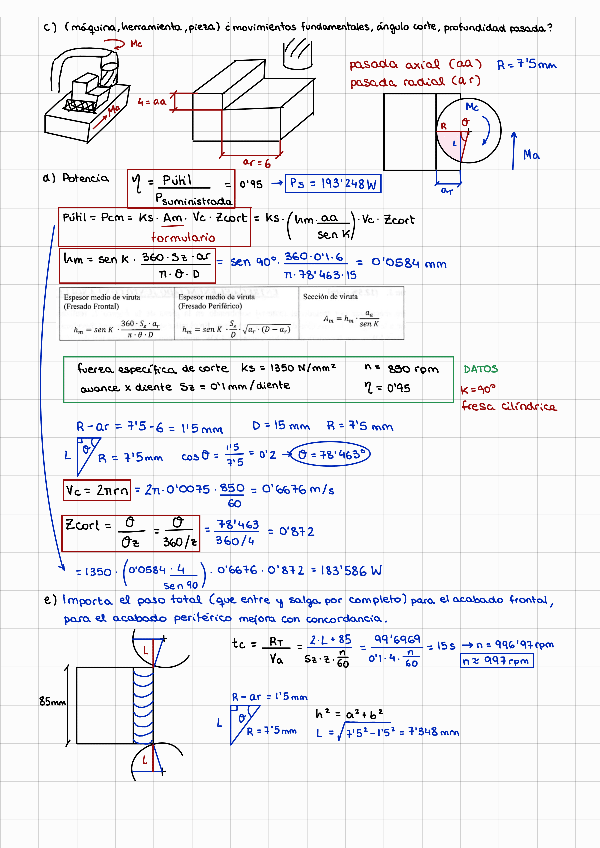 c) (máquina, herramienta, pieza) ¿movimientos fundamentales, ángulo corte, profundidad pasada?
Mc
Ma
4 = aa
ar = 6
pasada axial (aa) R = 7'5mm
pasada radial (ar)
Mc
R θ
L
ar
Ma
d) Potencia η = Pútil / Psuministrada = 0'95 → Ps = 193'248W
Pútil = Pcm = Ks · Am · Vc · Zcort = Ks · (hm · aa / sen K) · Vc · Zcort
formulario
hm = sen K · 360 · Sz · ar / π · θ · D = sen 90° · 360 · 0'1 · 6 / π · 78'463 · 15 = 0'0584 mm
Espesor medio de viruta (Fresado Frontal)
hm = sen K · 360 · Sz · ar / π · θ · D
Espesor medio de viruta (Fresado Periférico)
hm = sen K · Sz / D · √ar · (D − ar)
Sección de viruta
Am = hm · aa / sen K
fuerza específica de corte Ks = 1350 N/mm² n = 850 rpm
avance x diente Sz = 0'1 mm/diente η = 0'95
DATOS
K = 90°
fresa cilíndrica
R - ar = 7'5 - 6 = 1'5 mm D = 15 mm R = 7'5 mm
L θ R = 7'5mm cos θ = 1'5 / 7'5 = 0'2 → θ = 78'463°
Vc = 2πrn = 2π · 0'0075 · 850 / 60 = 0'6676 m/s
Zcort = θ / θz = θ / 360/z = 78'463 / 360/4 = 0'872
= 1350 · (0'0584 · 4 / sen 90) · 0'6676 · 0'872 = 183'586 W
e) Importa el paso total (que entre y salga por completo) para el acabado frontal,
para el acabado periférico mejora con concordancia.
L
85mm
L
tc = RT / Va = 2 · L + 85 / Sz · z · n/60 = 99'6969 / 0'1 · 4 · n/60 = 15s → n = 996'97 rpm
n ≈ 997 rpm
R - ar = 1'5 mm
L θ R = 7'5 mm
h² = a² + b²
L = √7'5² - 1'5² = 7'348 mm